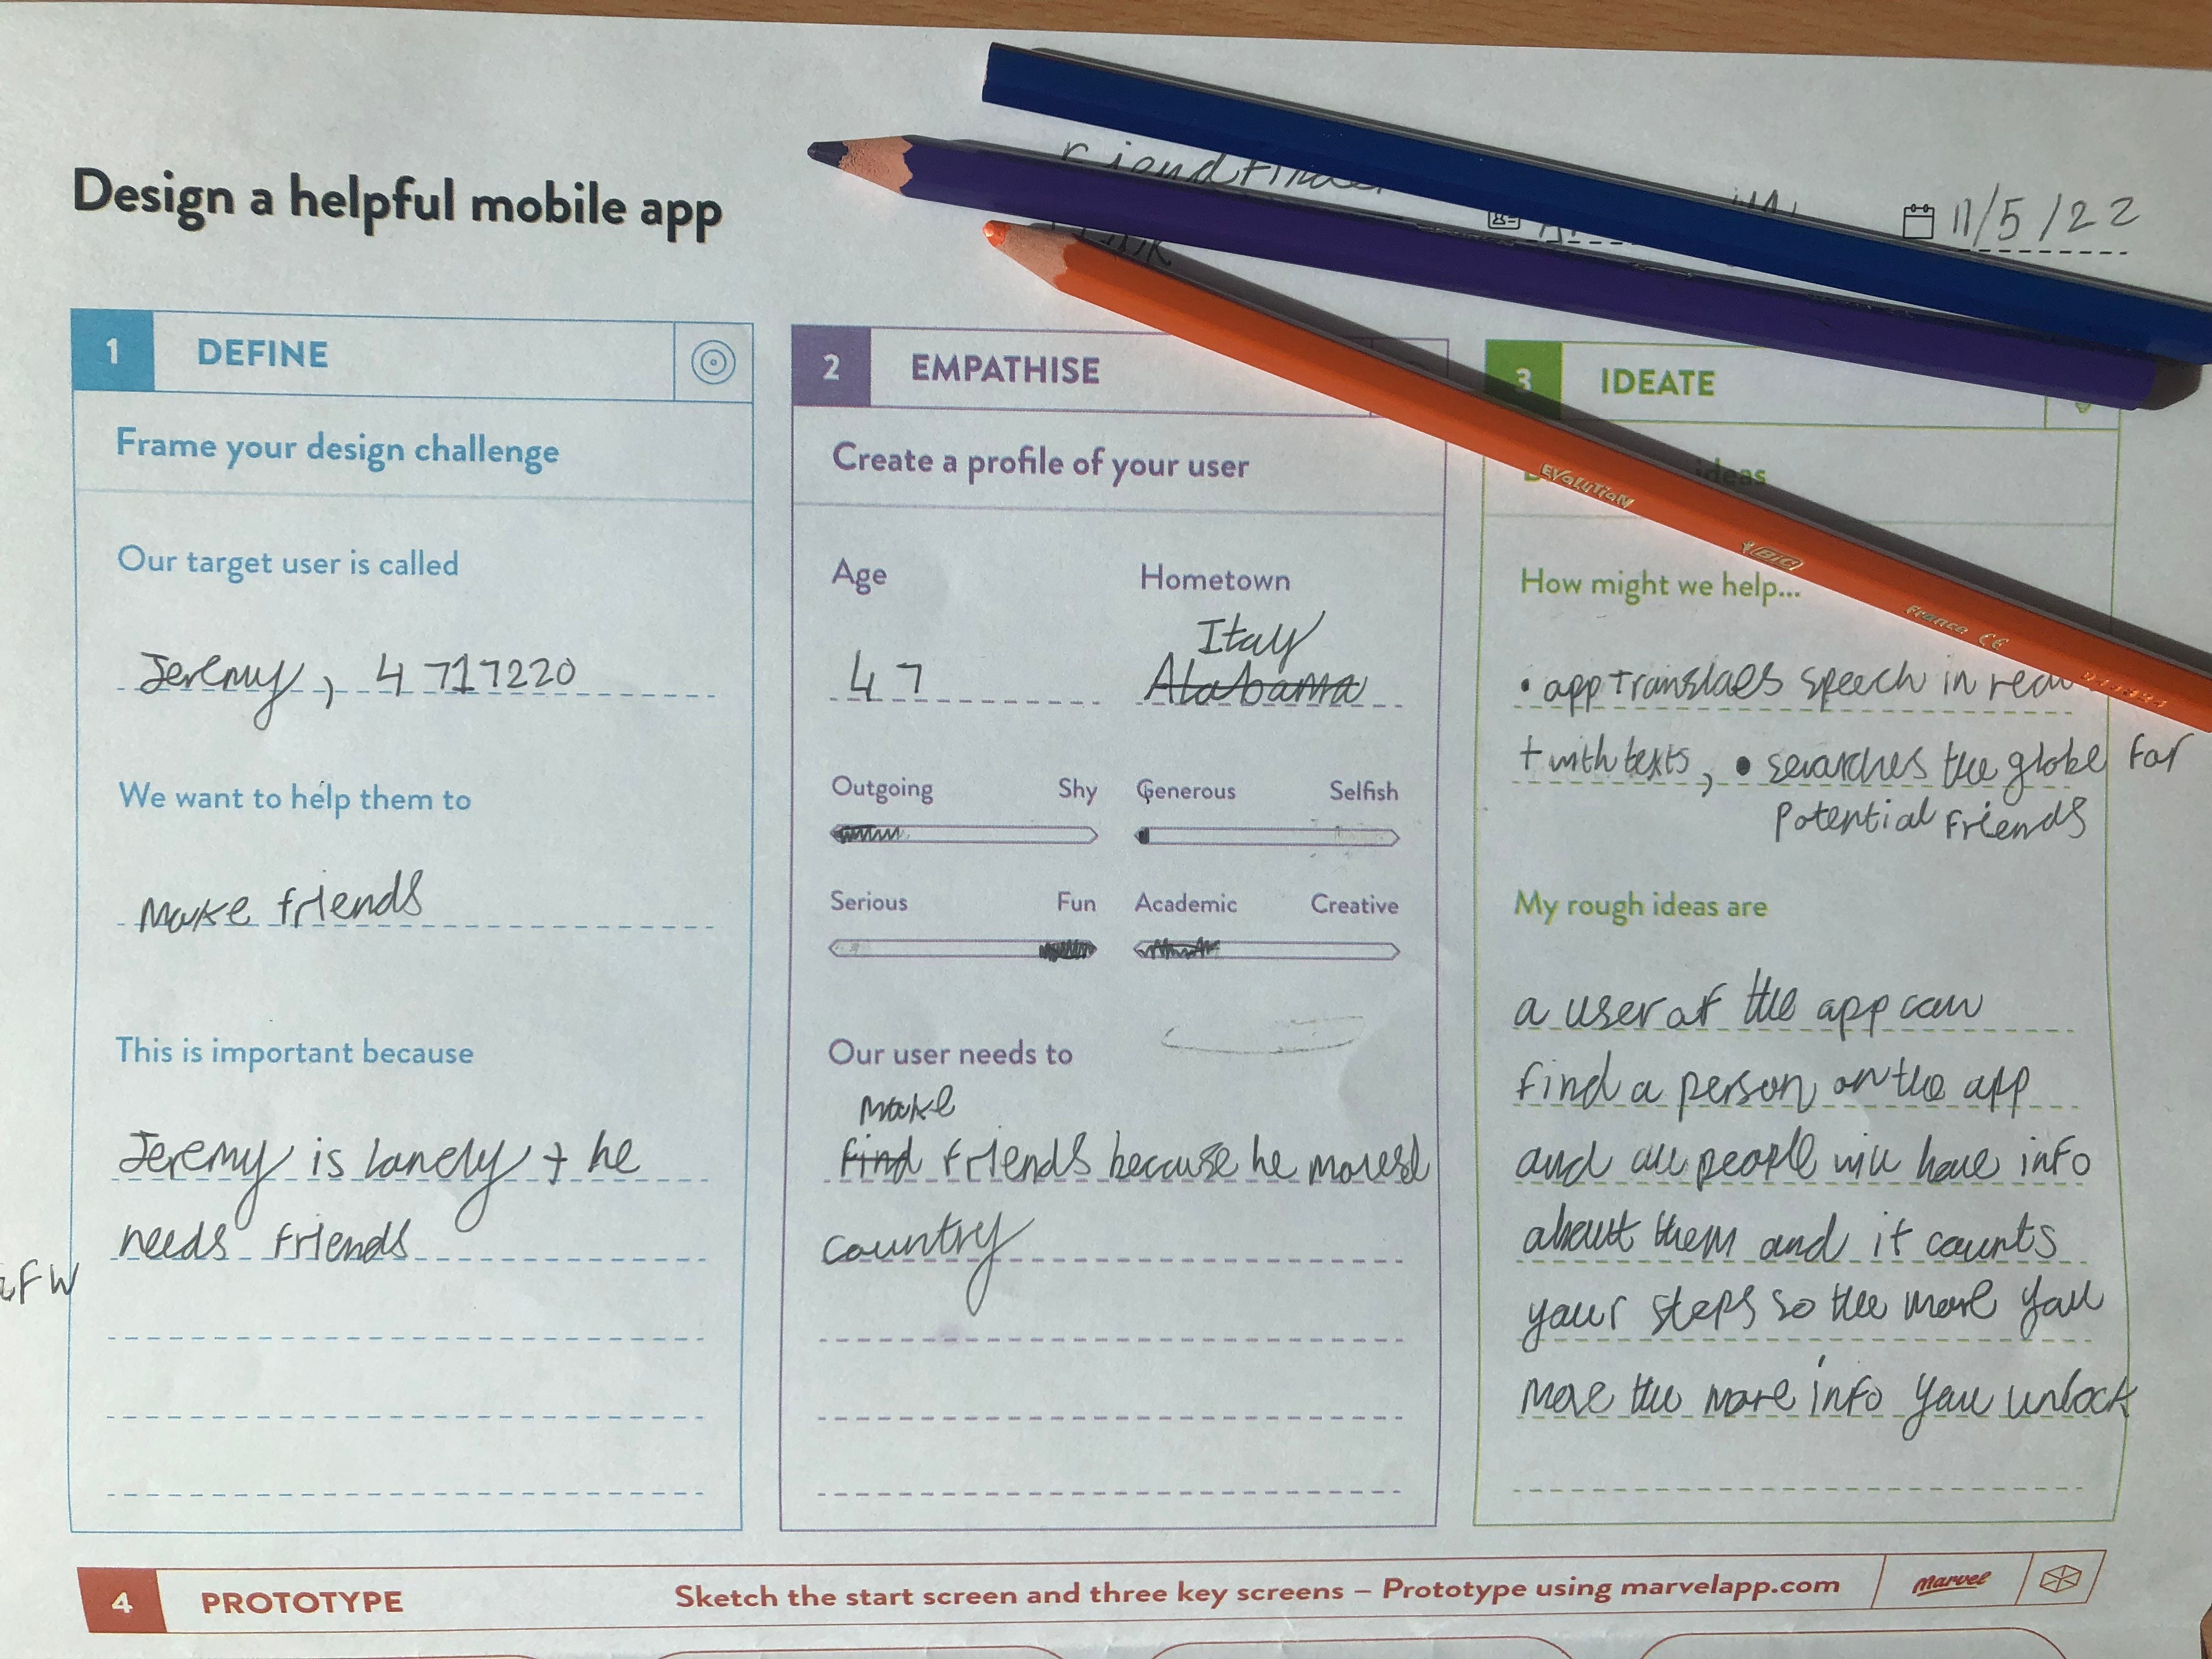 Design a helpful mobile app
11/5/22
1 DEFINE
Frame your design challenge
Our target user is called
Jeremy, 4 717220
We want to help them to
make friends
This is important because
Jeremy is lonely + he
needs friends
2 EMPATHISE
Create a profile of your user
Age Hometown
Itay
47 Alabama
Outgoing Shy Generous Selfish
Serious Fun Academic Creative
Our user needs to
make
find friends because he moved
country
3 IDEATE
ideas
How might we help...
• app translaes speech in
+ with texts, • searches the globe for
potential friends
My rough ideas are
a user of the app can
find a person on the app
and all people will have info
about them and it counts
your steps so the more you
move the more info you unlock
4 PROTOTYPE Sketch the start screen and three key screens – Prototype using marvelapp.com Marvel
EVOLUTION BIC France CE